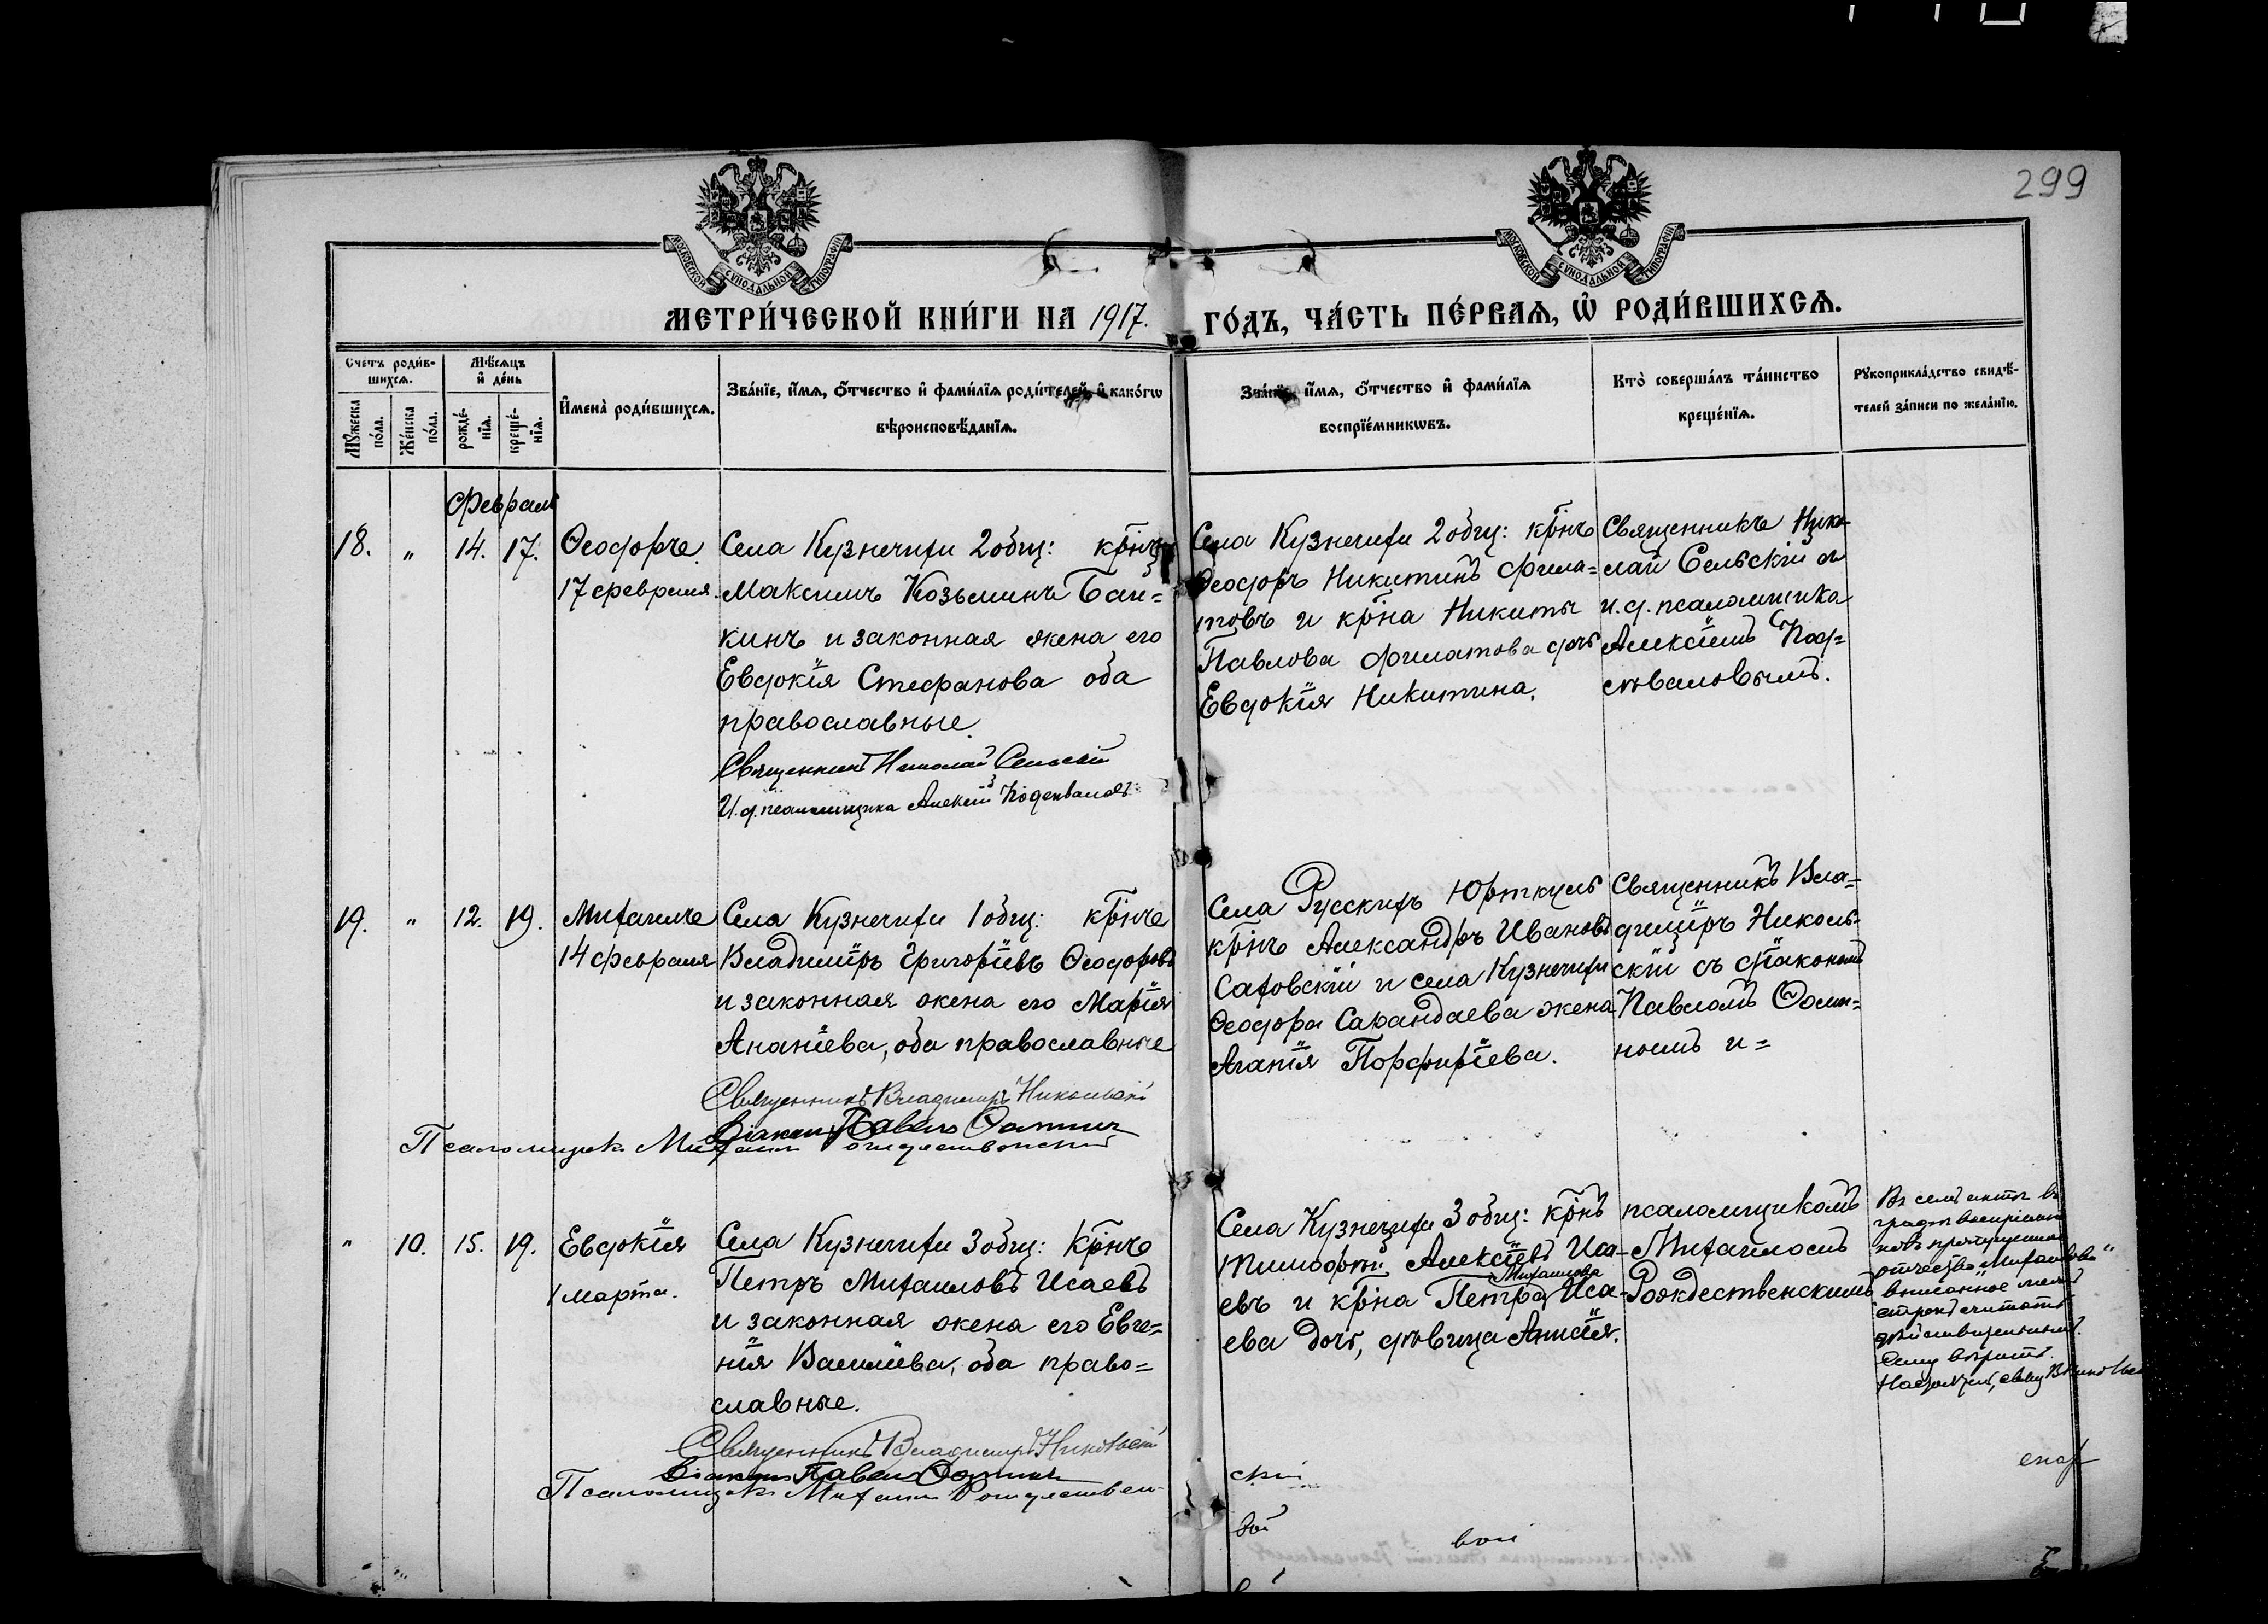 299
МОСКОВСКОЙ СѴНОДАЛЬНОЙ ТИПОГРАФІИ
МОСКОВСКОЙ СѴНОДАЛЬНОЙ ТИПОГРАФІИ
МЕТРИ́ЧЕСКОЙ КНИ́ГИ НА 1917. ГО́ДЪ, ЧА́СТЬ ПЕ́РВАѦ, Ѡ҆ РОДИ́ВШИХСѦ.
Сче́тъ роди́в-
шихсѧ.
Мѣ́сѧцъ
и҆ де́нь
Мꙋ́жеска
по́ла.
Же́нска
по́ла.
рожде́-
нїѧ.
креще́-
нїѧ.
И҆мена̀ роди́вшихсѧ.
Зва́нїе, и҆́мѧ, ѻ҆́тчество и҆ фами́лїѧ роди́телей, и҆ како́гѡ
вѣроисповѣ́данїѧ.
Зва́нїе, и҆́мѧ, ѻ҆́тчество и҆ фами́лїѧ
воспрїе́мникѡвъ.
Кто̀ соверша́лъ та́инство
креще́нїѧ.
Рꙋкоприкла́дство свидѣ́-
телей за́писи по жела́нїю.
Февраль
18. " 14. 17.
Ѳеодоръ.
17 февраля.
Села Кузнечихи 2 общ: крнъ
Максимъ Козьминъ Бай=
кинъ и законная жена его
Евдокія Стефанова оба
православные.
Священникъ Николай Сельскій
И. д. псаломщика Алексій Подсѣваловъ
Села Кузнечихи 2 общ: крнъ
Ѳеодоръ Никитинъ Фила=
товъ и крна Никиты
Павлова Филатова дочь
Евдокія Никитина.
Священникъ Нико-
лай Сельскій съ
и. д. псаломщика
Алексіемъ Под=
сѣваловымъ.
19. " 12. 19.
Михаилъ
14 февраля
Села Кузнечихи 1 общ: крнъ
Владиміръ Григоріевъ Ѳеодоровъ
и законная жена его Марія
Ананіева, оба православные
Священникъ Владиміръ Никольскій
Діаконъ Павелъ Ѳоминъ
Псаломщикъ Михаилъ Рождественскій
Села Русскихъ Юрткуль
крнъ Александръ Ивановъ
Саховскій и села Кузнечихи
Ѳеодора Сарандаева жена
Агапія Порфиріева.
Священникъ Вла=
диміръ Николь-
скій съ діакономъ
Павломъ Ѳоми=
нымъ и=
" 10. 15. 19.
Евдокія
1 марта.
Села Кузнечихи 3 общ: крнъ
Петръ Михаиловъ Исаевъ
и законная жена его Евге=
нія Васильева, оба право=
славные.
Священникъ Владиміръ Никольскій
Діаконъ Павелъ Ѳоминъ
Псаломщикъ Михаилъ Рождествен-
Села Кузнечихи 3 общ: крнъ
Тимофей Алексіевъ Иса-
Михаилова
евъ и крна Петра Иса-
ева дочь, дѣвица Анисія.
псаломщикомъ
Михаиломъ
Рождественскимъ
Въ семъ актѣ въ
графѣ воспріемни
ковъ пропущенное
отчество „Михаилова"
вписанное межъ
строкъ считать
дѣйствительнымъ.
Сему вѣрить.
скій
вой